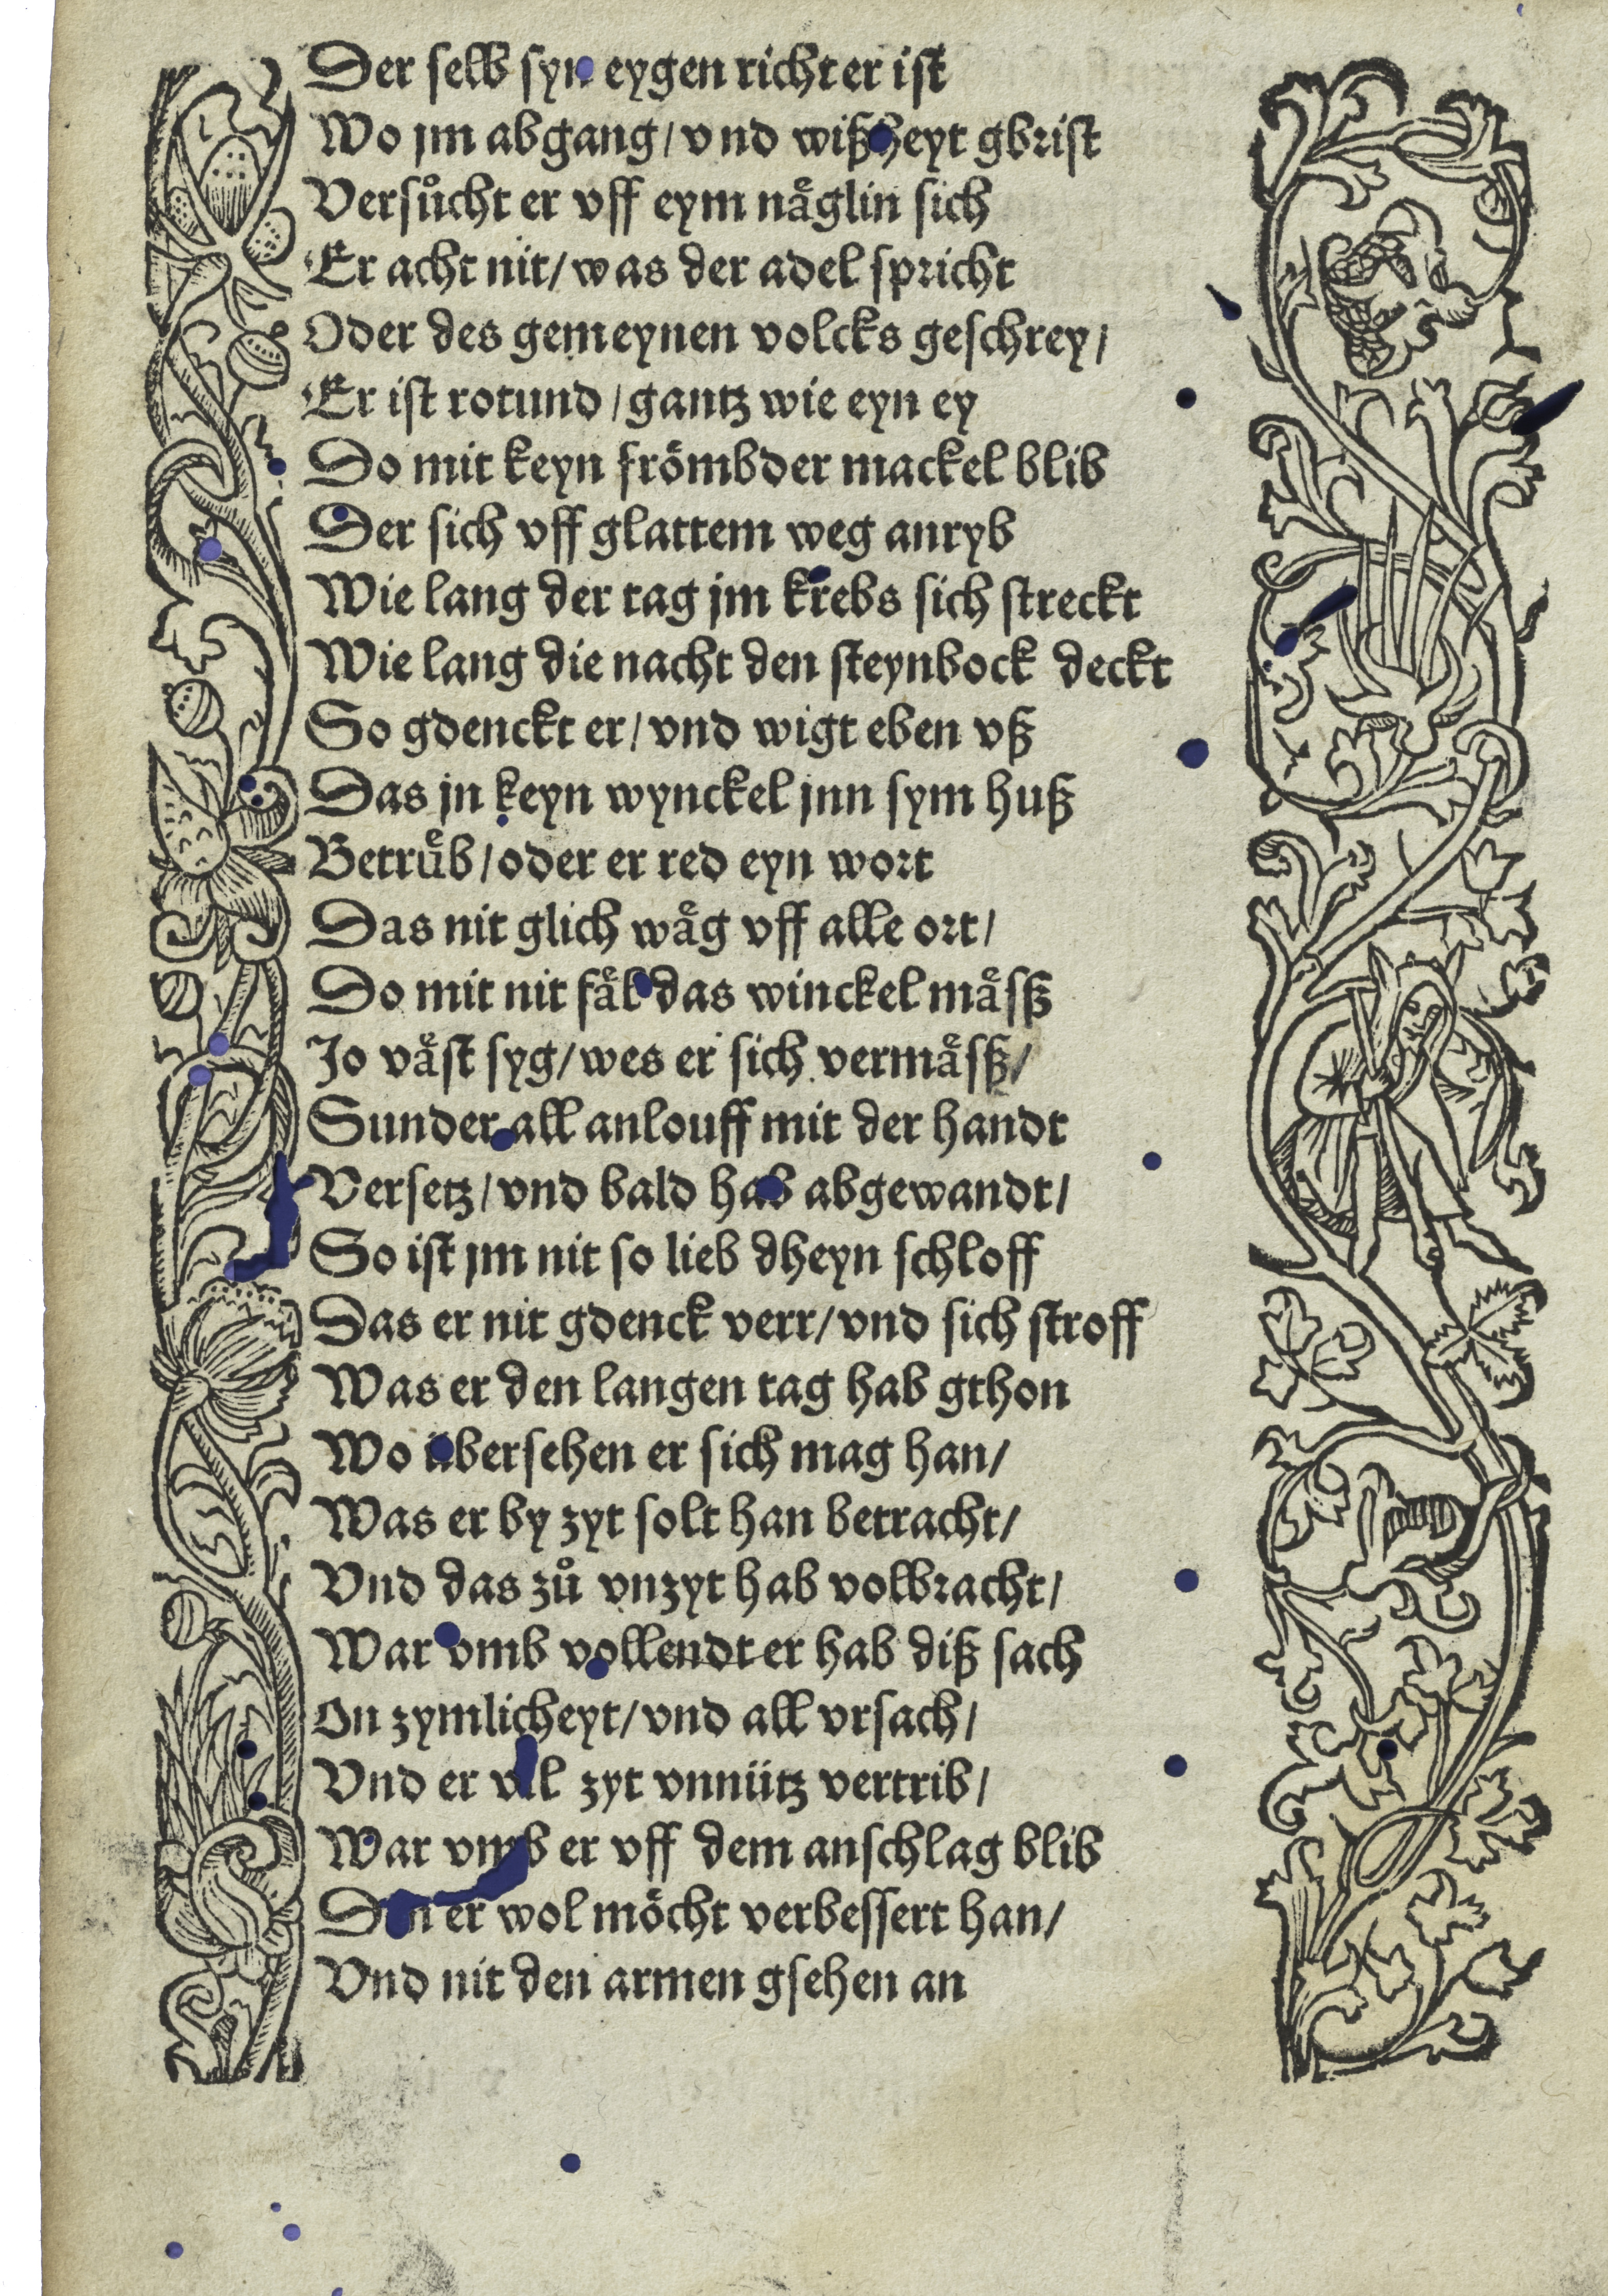 Der selb syn eygen richter ist
Wo jm abgang / vnd wißheyt gbrist
Versůcht er vff eym någlin sich
Er acht nit / was der adel spricht
Oder des gemeynen volcks geschrey /
Er ist rotund / gantz wie eyn ey
Do mit keyn frömbder mackel blib
Der sich vff glattem weg anryb
Wie lang der tag jm krebs sich streckt
Wie lang die nacht den steynbock deckt
So gdenckt er / vnd wigt eben vß
Das jn keyn wynckel jnn sym huß
Betruͤb / oder er red eyn wort
Das nit glich waͤg vff alle ort /
Do mit nit faͤl das winckel maͤsß
Jo vaͤst syg / wes er sich vermaͤsß /
Sunder all anlouff mit der handt
Versetz / vnd bald hab abgewandt /
So ist jm nit so lieb dheyn schloff
Das er nit gdenck verr / vnd sich stroff
Was er den langen tag hab gthon
Wo übersehen er sich mag han /
Was er by zyt solt han betracht /
Vnd das zů vnzyt hab volbracht /
War vmb vollendt er hab diß sach
On zymlicheyt / vnd all vrsach /
Vnd er vil zyt vnnütz vertrib /
War vmb er vff dem anschlag blib
Den er wol möcht verbessert han /
Vnd nit den armen gsehen an